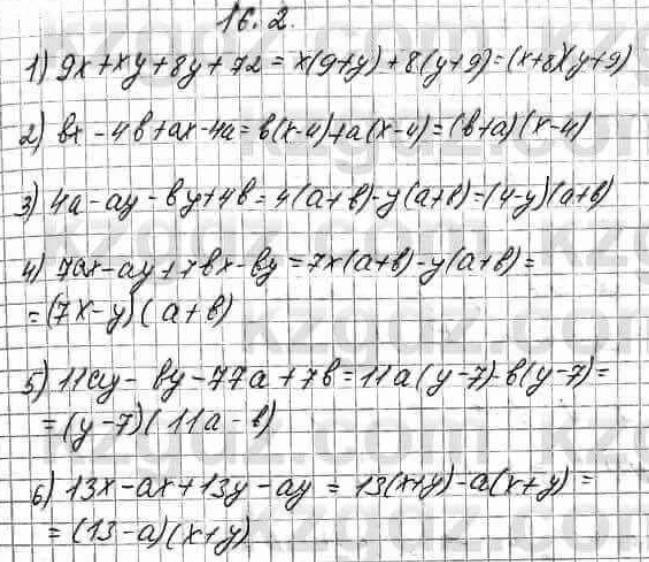 16.2.
1) 9x+xy+8y+72 = x(9+y)+8(y+9)=(x+8)(y+9)
2) вx-4в+ax-4a=в(x-4)+a(x-4)=(в+a)(x-4)
3) 4a-ay-вy+4в=4(a+в)-y(a+в)=(4-y)(a+в)
4) 7ax-ay+7вx-вy=7x(a+в)-y(a+в)=
=(7x-y)(a+в)
5) 11ay-вy-77a+7в=11a(y-7)-в(y-7)=
=(y-7)(11a-в)
6) 13x-ax+13y-ay = 13(x+y)-a(x+y) =
= (13-a)(x+y)